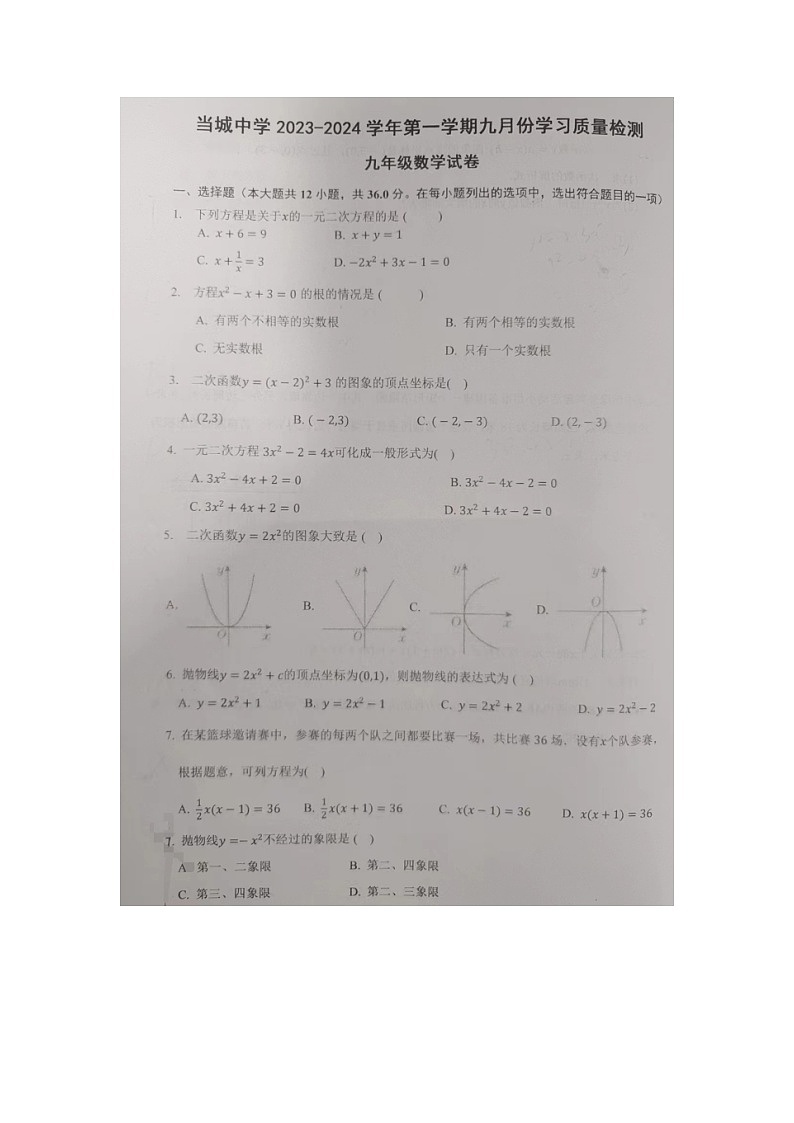 当城中学 2023-2024 学年第一学期九月份学习质量检测
九年级数学试卷
一、选择题（本大题共 12 小题，共 36.0 分。在每小题列出的选项中，选出符合题目的一项）
1. 下列方程是关于x的一元二次方程的是 ( )
A. x + 6 = 9 B. x + y = 1
C. x + 1/x = 3 D. −2x² + 3x − 1 = 0
2. 方程x² − x + 3 = 0 的根的情况是 ( )
A. 有两个不相等的实数根 B. 有两个相等的实数根
C. 无实数根 D. 只有一个实数根
3. 二次函数y = (x − 2)² + 3 的图象的顶点坐标是( )
A. (2,3) B. ( − 2,3) C. ( − 2, − 3) D. (2, − 3)
4. 一元二次方程 3x² − 2 = 4x可化成一般形式为( )
A. 3x² − 4x + 2 = 0 B. 3x² − 4x − 2 = 0
C. 3x² + 4x + 2 = 0 D. 3x² + 4x − 2 = 0
5. 二次函数y = 2x²的图象大致是 ( )
A. y O x B. y O x C. y O x D. y O x
6. 抛物线y = 2x² + c的顶点坐标为(0,1)，则抛物线的表达式为 ( )
A. y = 2x² + 1 B. y = 2x² − 1 C. y = 2x² + 2 D. y = 2x² − 2
7. 在某篮球邀请赛中，参赛的每两个队之间都要比赛一场，共比赛 36 场，设有x个队参赛，
根据题意，可列方程为( )
A. 1/2x(x − 1) = 36 B. 1/2x(x + 1) = 36 C. x(x − 1) = 36 D. x(x + 1) = 36
7. 抛物线y =− x²不经过的象限是 ( )
A 第一、二象限 B. 第二、四象限
C. 第三、四象限 D. 第二、三象限